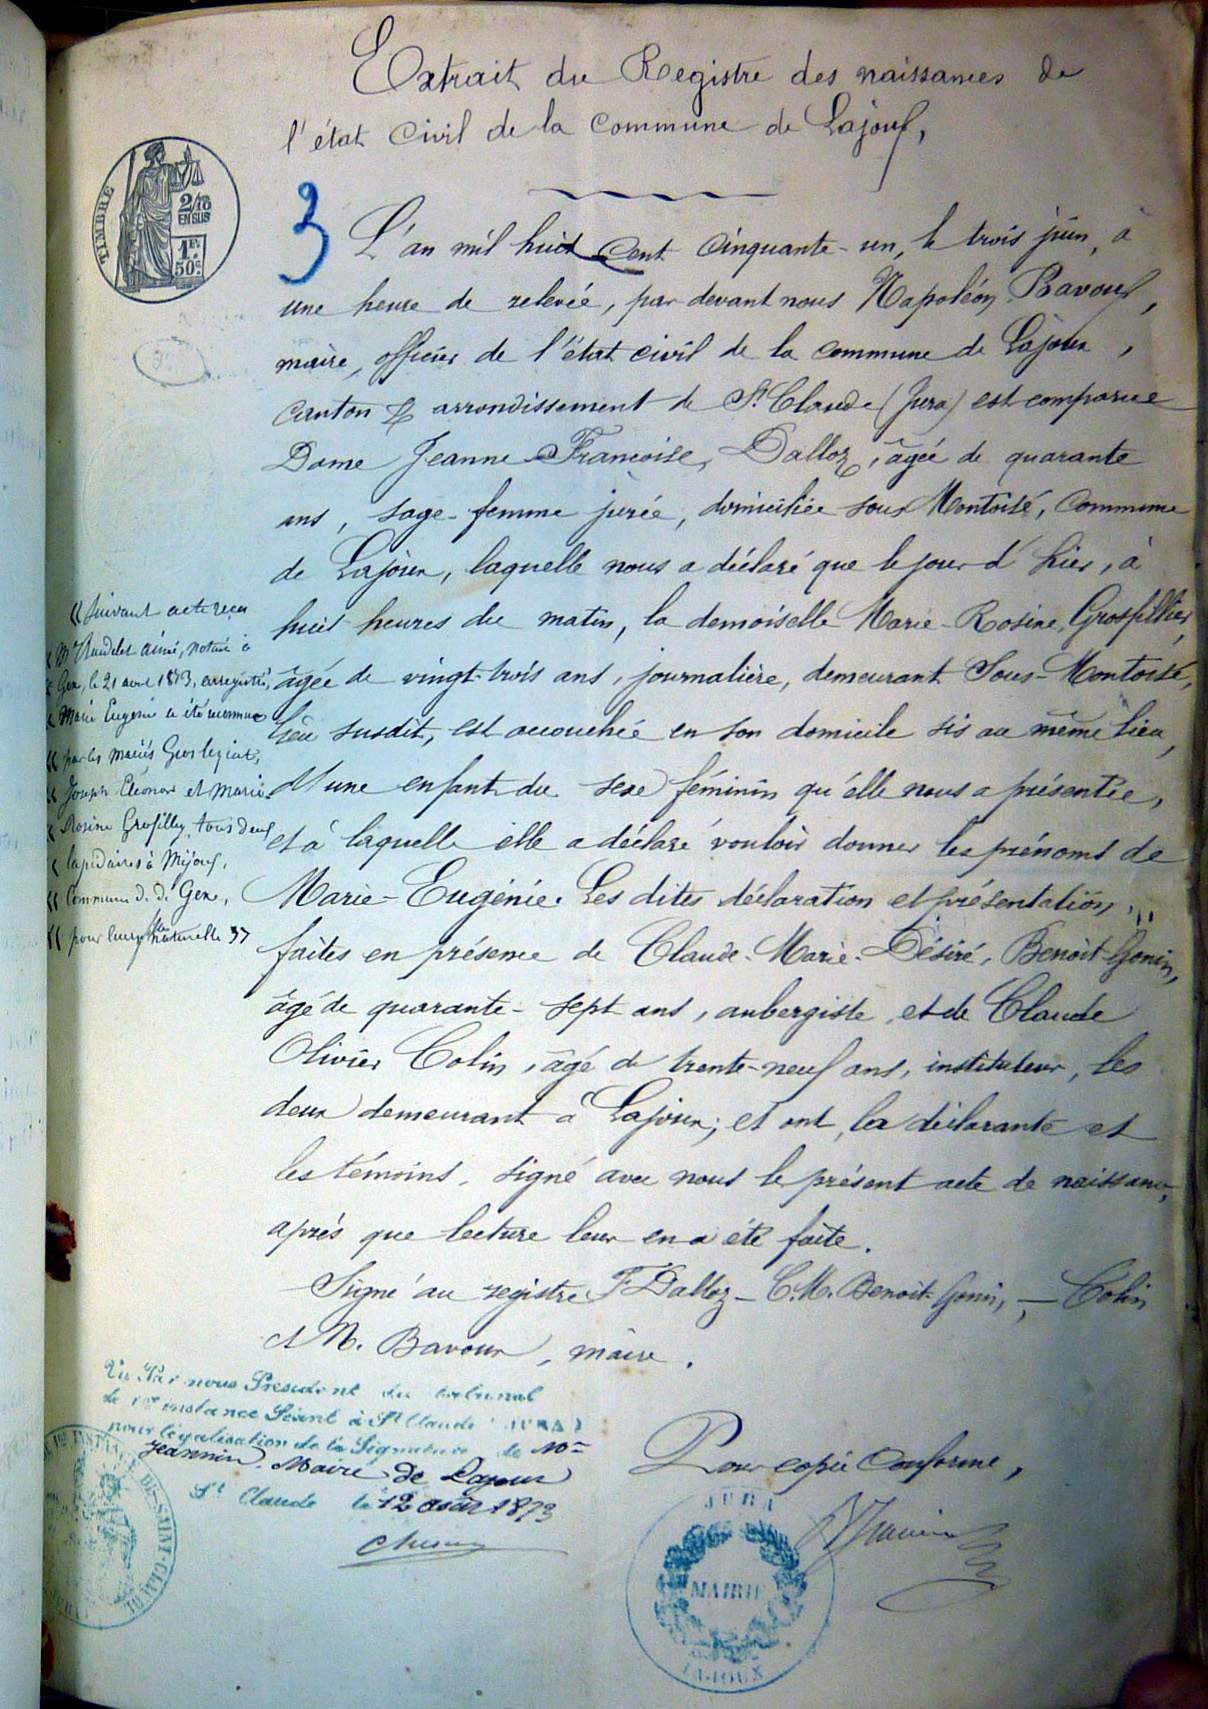 Extrait du Registre des naissances de
l'état civil de la commune de Lajoux,
TIMBRE
2/10
EN SUS
1F.
50c.
3
L'an mil huit cent cinquante-un, le trois juin, à
une heure de relevée, par devant nous Napoléon Bavoux,
maire, officier de l'état civil de la commune de Lajoux,
canton & arrondissement de St. Claude (Jura) est comparue
Dame Jeanne-Françoise, Dalloz, âgée de quarante
ans, sage-femme jurée, domiciliée sous Montoisé, commune
de Lajoux, laquelle nous a déclaré que le jour d'hier, à
huit heures du matin, la demoiselle Marie-Rosine, Grosfilley,
âgée de vingt-trois ans, journalière, demeurant Sous-Montoisé,
lieu susdit, est accouchée en son domicile sis au même lieu,
d'une enfant du sexe féminin qu'elle nous a présentée,
et à laquelle elle a déclaré vouloir donner les prénoms de
Marie-Eugénie. Les dites déclaration et présentation
faites en présence de Claude-Marie-Désiré, Benoit-Gonin,
âgé de quarante-sept ans, aubergiste, et de Claude
Olivier Colin, âgé de trente-neuf ans, instituteur, les
deux demeurant à Lajoux; et ont, la déclarante et
les témoins, signé avec nous le présent acte de naissance,
après que lecture leur en a été faite.
Signé au registre F Dalloz - C.M. Benoit-Gonin, - Colin
et N. Bavoux, maire.
« Suivant acte reçu
« Me aîné, notaire à
« Gex, le 21 avril 1873, enregistré,
« Marie Eugénie a été reconnue
« par les mariés Grosfilley,
« Joseph Eléonor et Marie
« Rosine Grosfilley, tous deux
« lapidaires à Mijoux,
« Commune de Gex,
« pour leur fille naturelle »
Vu Par nous Président du tribunal
de 1re instance Séant à St Claude (JURA)
pour légalisation de la Signature de Mr
Jeannin Maire de Lajoux
St Claude le 12 août 1873
Pour copie conforme,
1re INSTANCE DE SAINT-CLAUDE
JURA
JURA
MAIRIE
LAJOUX